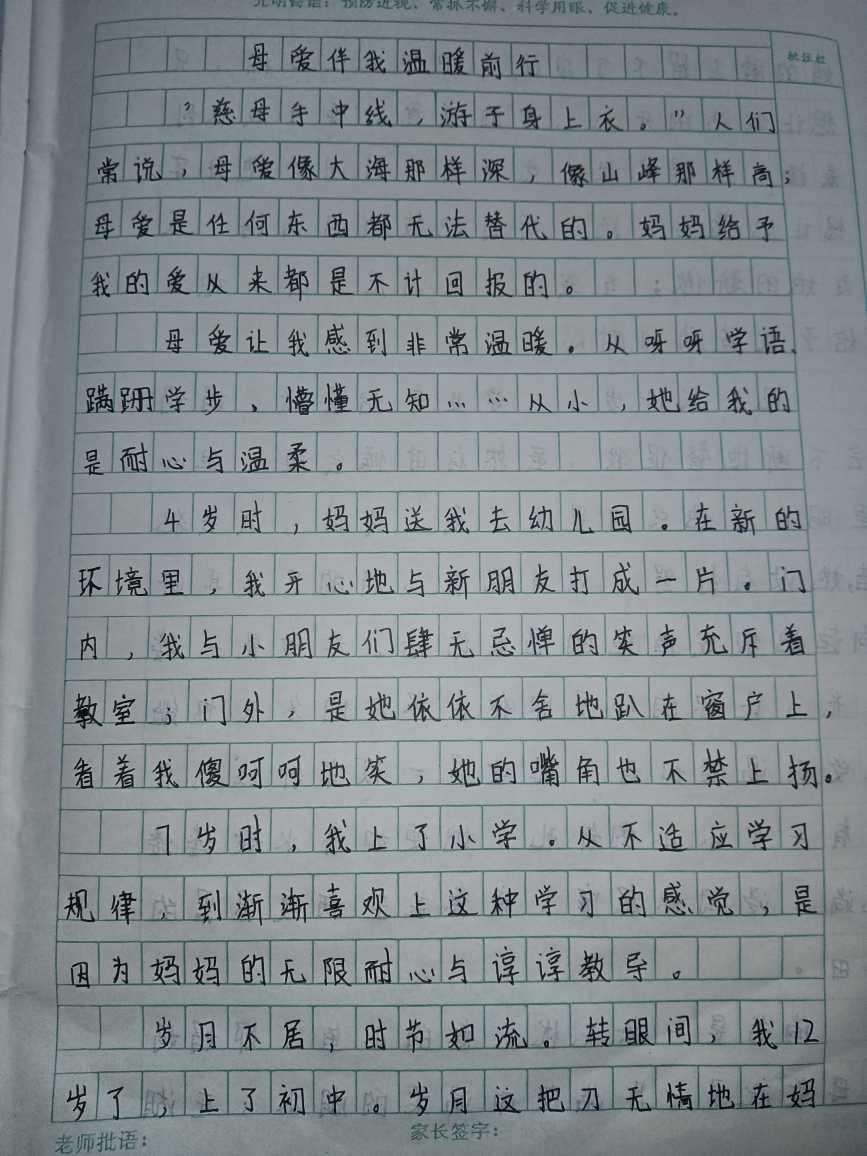 光明寄语：预防近视、常抓不懈、科学用眼、促进健康。
批注栏
母爱伴我温暖前行
“慈母手中线，游于身上衣。”人们
常说，母爱像大海那样深，像山峰那样高；
母爱是任何东西都无法替代的。妈妈给予
我的爱从来都是不计回报的。
母爱让我感到非常温暖。从呀呀学语、
蹒跚学步、懵懂无知……从小，她给我的
是耐心与温柔。
4岁时，妈妈送我去幼儿园。在新的
环境里，我开心地与新朋友打成一片。门
内，我与小朋友们肆无忌惮的笑声充斥着
教室；门外，是她依依不舍地趴在窗户上，
看着我傻呵呵地笑，她的嘴角也不禁上扬。
7岁时，我上了小学。从不适应学习
规律，到渐渐喜欢上这种学习的感觉，是
因为妈妈的无限耐心与谆谆教导。
岁月不居，时节如流。转眼间，我12
岁了，上了初中。岁月这把刀无情地在妈
老师批语：
家长签字：